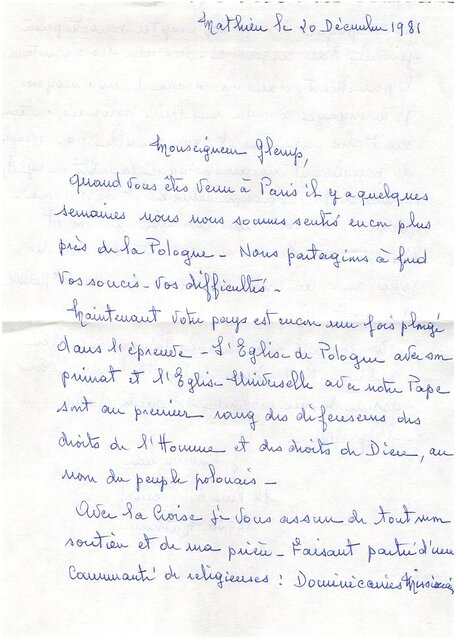 Mathieu le 20 Décembre 1981
Monseigneur Glemp,
Quand vous êtes venu à Paris il y a quelques
semaines nous nous sommes sentis encore plus
près de la Pologne - Nous partagions à fond
vos soucis - vos difficultés -
Maintenant votre pays est encore une fois plongé
dans l'épreuve - L'Eglise de Pologne avec son
primat et l'Eglise Universelle avec notre Pape
sont au premier rang des défenseurs des
droits de l'Homme et des droits de Dieu, au
nom du peuple polonais -
Avec la je vous assure de tout mon
soutien et de ma prière - Faisant partie d'une
Communauté de religieuses : Dominicaines Missionnaires